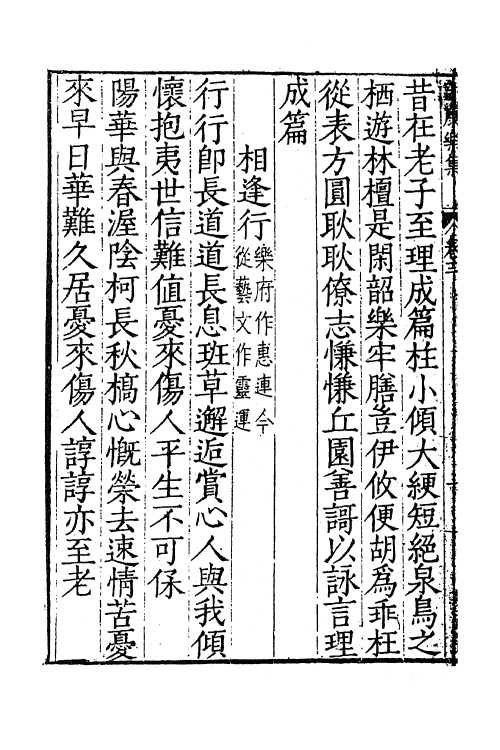 昔在老子至理成篇柱小傾大綆短絕泉鳥之
栖遊林檀是閑韶樂牢膳豈伊攸便胡爲乖枉
從表方圓耿耿僚志慊慊丘園善謌以詠言理
成篇
相逢行樂府作惠連今從藝文作靈運
行行即長道道長息班草邂逅賞心人與我傾
懷抱夷世信難值憂來傷人平生不可保
陽華與春渥陰柯長秋槁心慨榮去速情苦憂
來早日華難久居憂來傷人諄諄亦至老